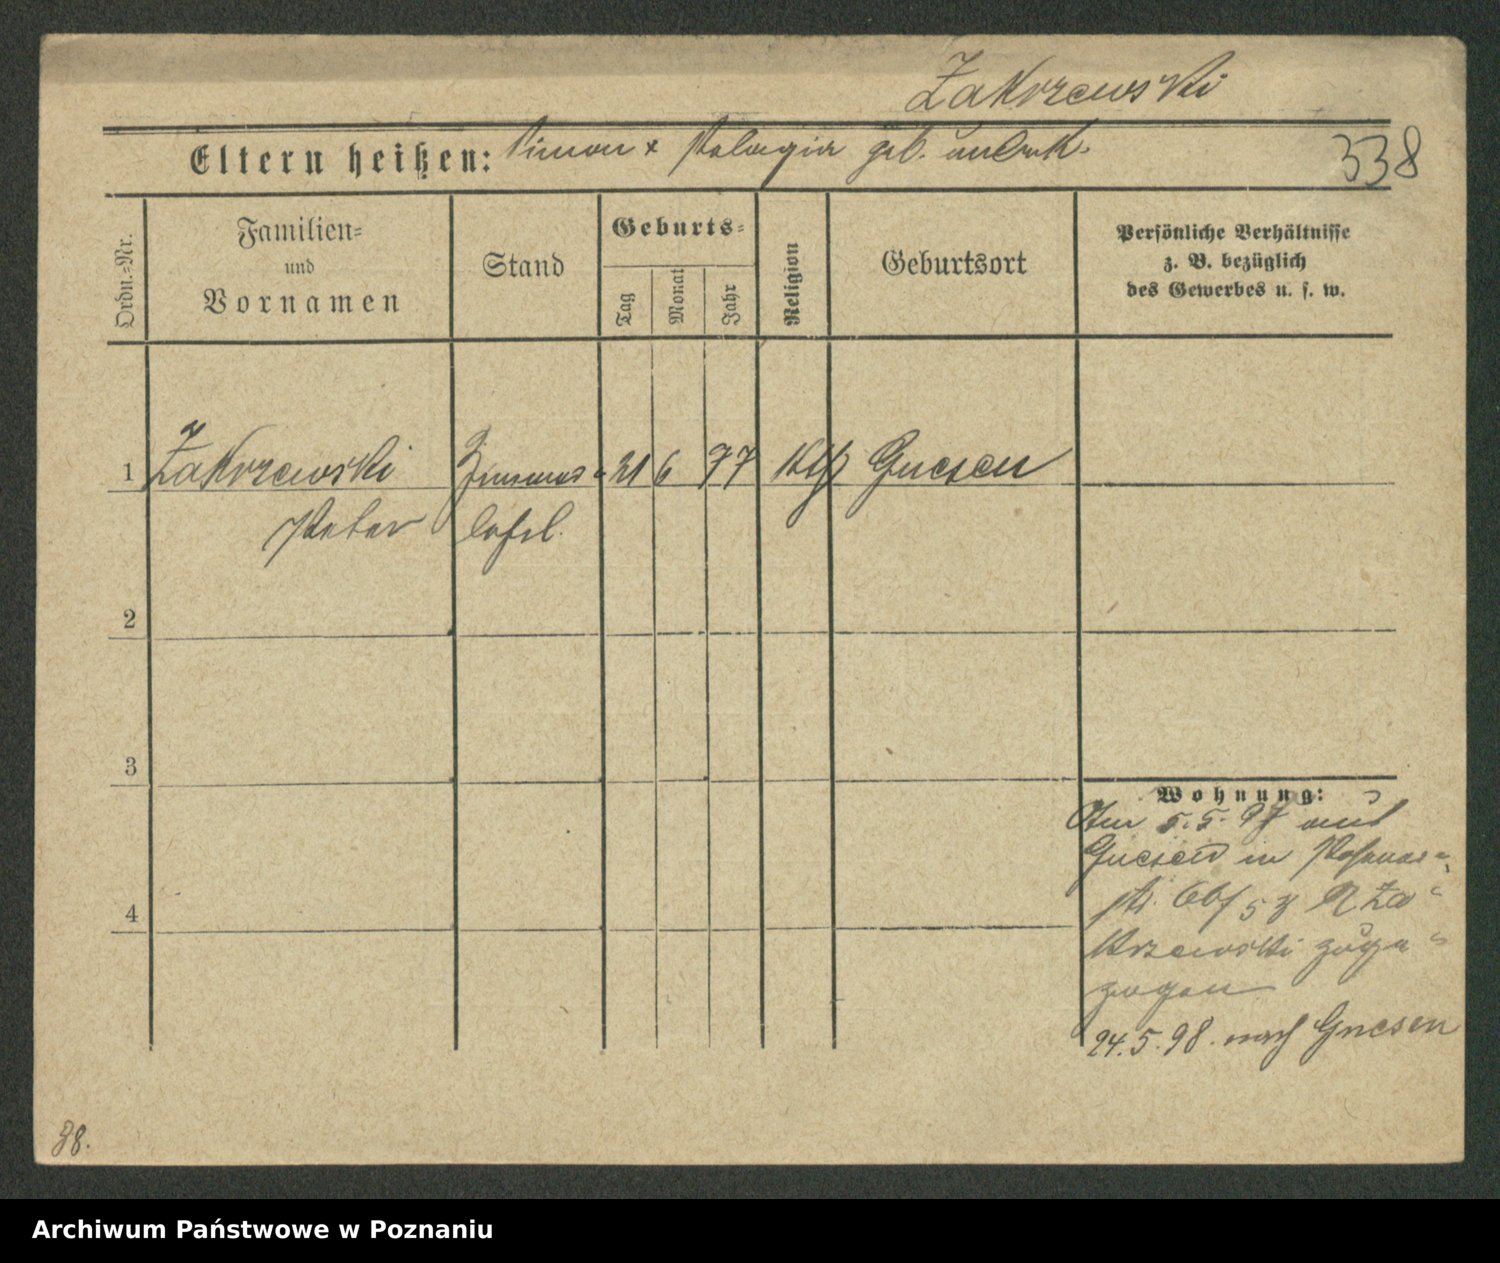 Zakrzewski
Eltern heißen: Simon x Pelagia geb. unbek.
338
Ordn.=Nr.
Familien=
und
Vornamen
Stand
Geburts=
Tag
Monat
Jahr
Religion
Geburtsort
Persönliche Verhältnisse
z. B. bezüglich
des Gewerbes u. s. w.
1 Zakrzewski 21 6 77 Kth Gnesen
Peter
2
3
4
Wohnung:
Am 5.5.97 aus
Gnesen in
Za=
krzewski zuge=
zogen
24.5.98. nach Gnesen
38.
Archiwum Państwowe w Poznaniu